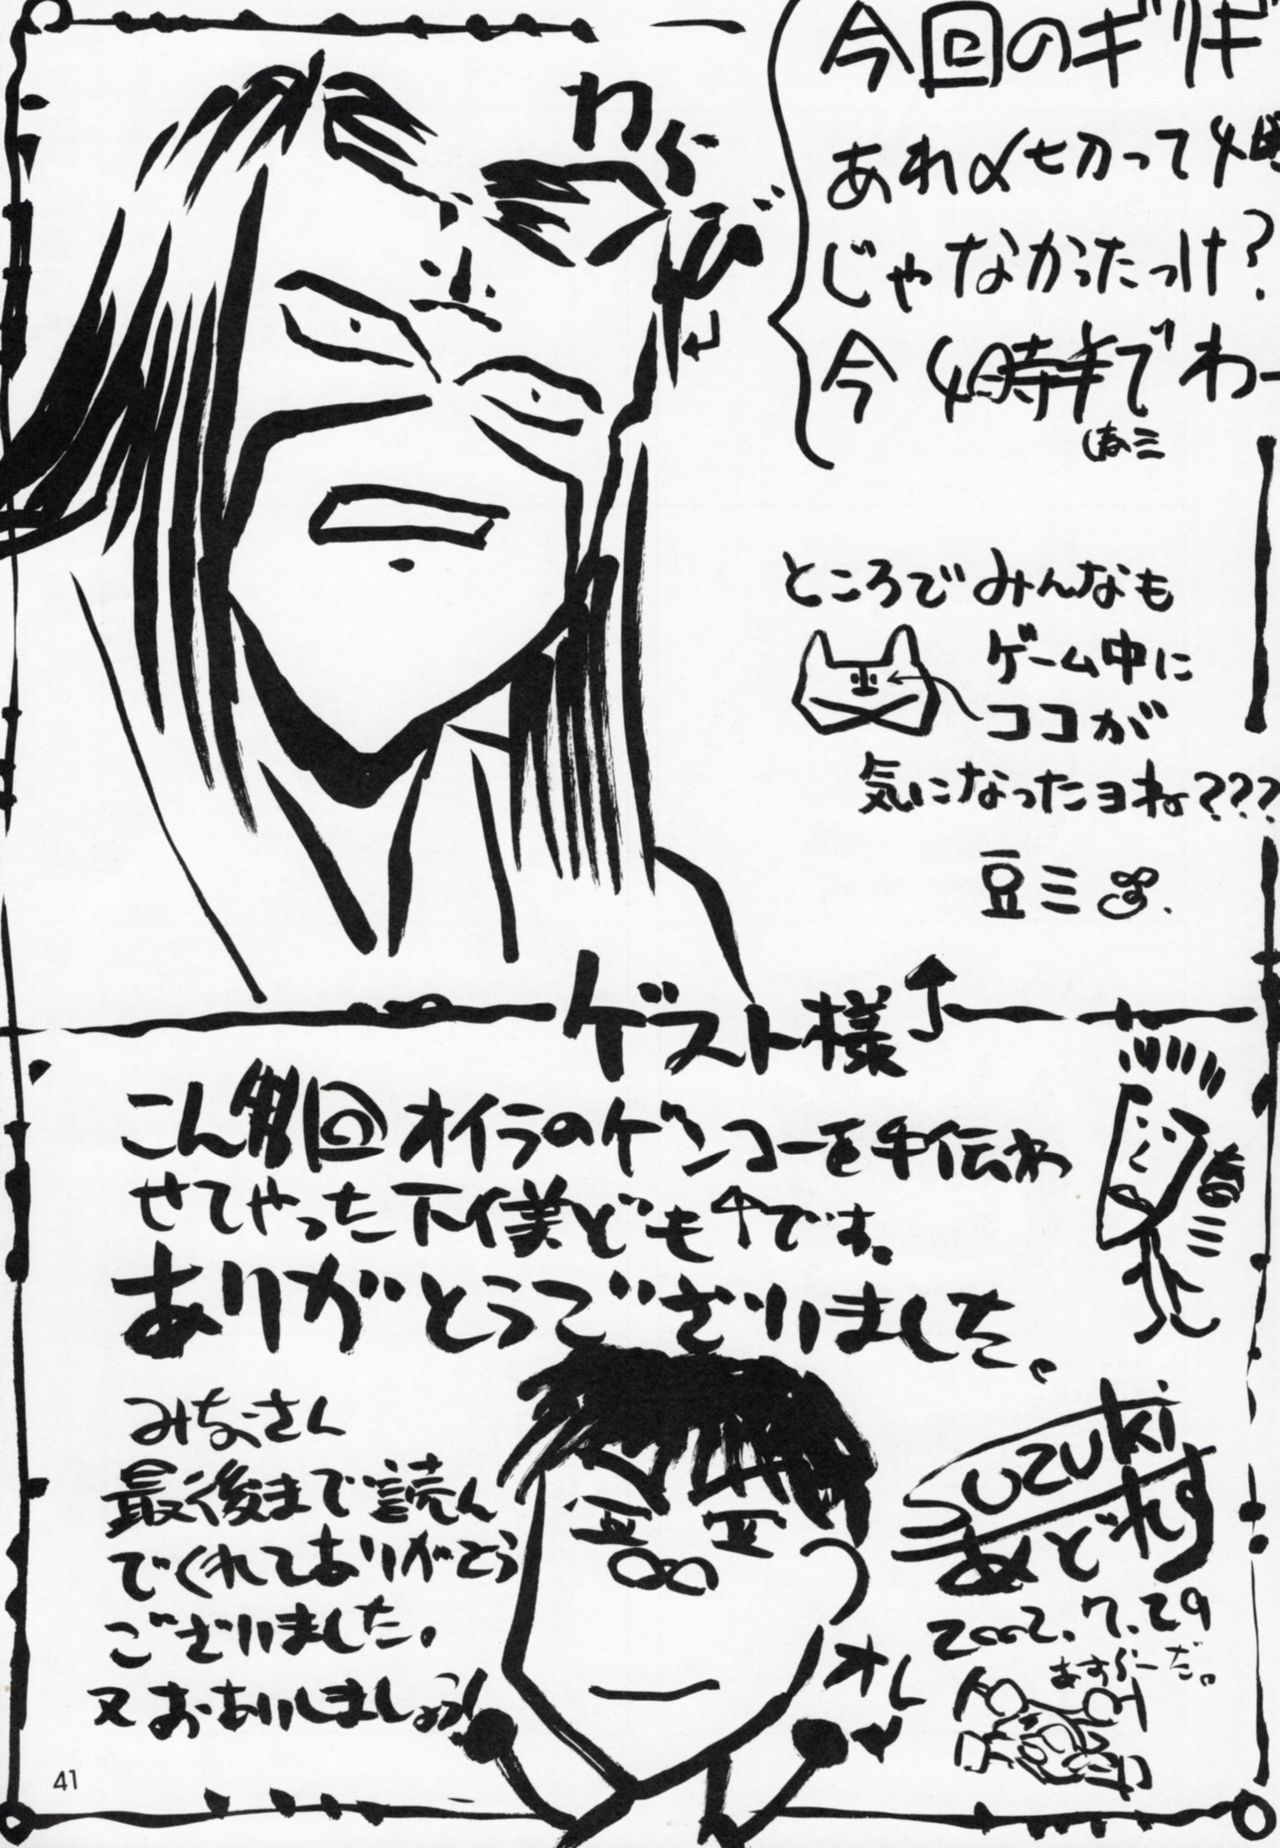 今回のギリギ
あれ〆切って
じゃなかったっけ?
今 4時半でわー
わらび
ところでみんなも
ゲーム中に
ココが
気になったヨね???
豆ミ
ゲスト様↑
こん回オイラのゲンコーを手伝わ
せてやった下僕ども↑です。
ありがとうございました。
みなさん
最後まで読ん
でくれてありがとう
ございました。
又おあいしましょう!
オレ
SUZUKI
あどれす
2002.7.29
41